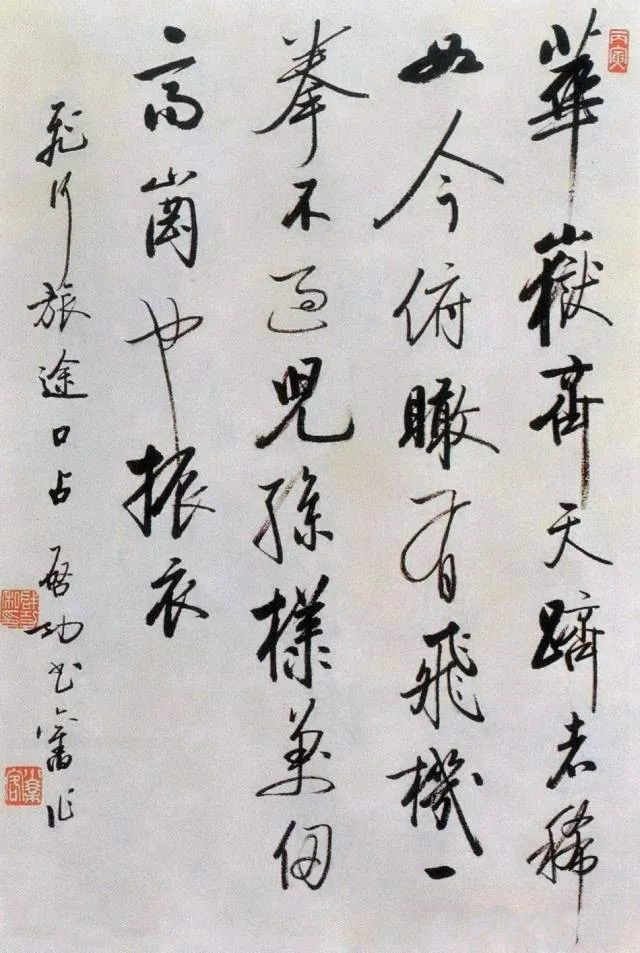 丙寅
華嶽齊天躋者稀
如今俯瞰有飛機一
拳不過兒孫樣萬仞
高崗也振衣
飛行旅途口占 啓功書舊作